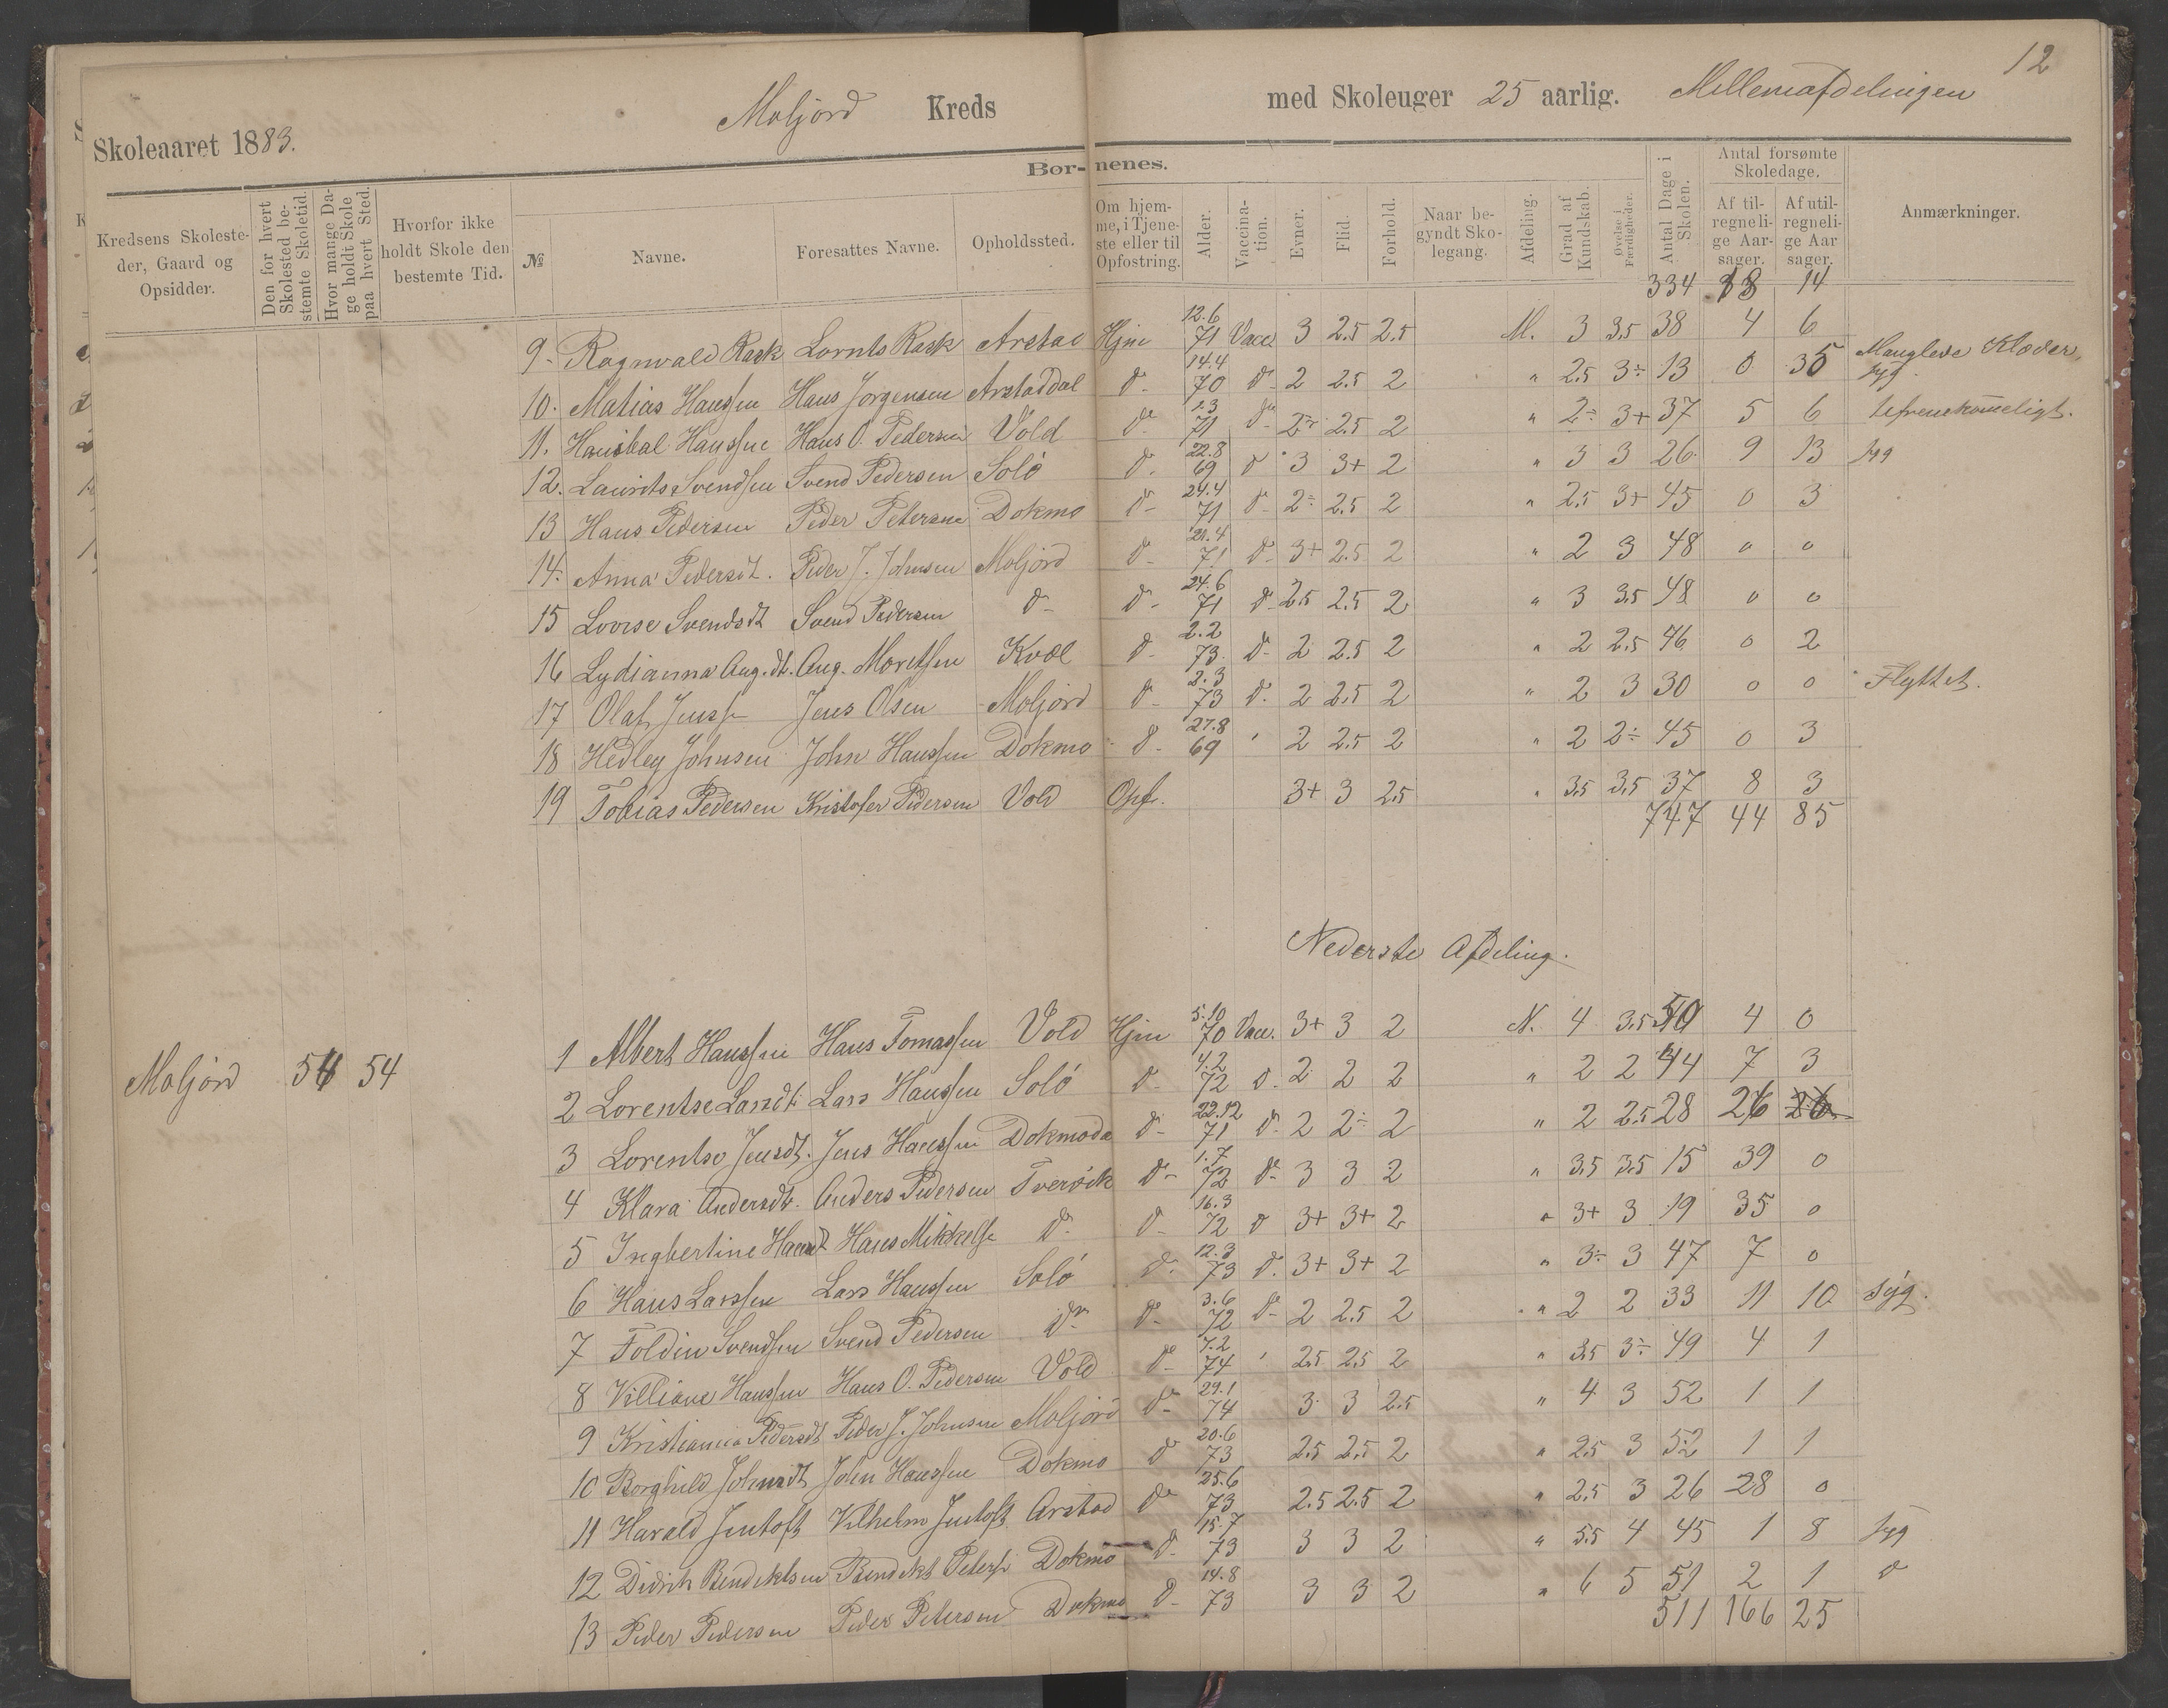 12
Skoleaaret 1883. Moljord Kreds med Skoleuger 25 aarlig. Mellemafdelingen
Kredsens Skolesteder, Gaard og Opsidder.
Den for hvert Skolested bestemte Skoletid.
Hvor mange Dage holdt Skole paa hvert Sted.
Hvorfor ikke holdt Skole den bestemte Tid.
Børnenes.
№
Navne.
Foresattes Navne.
Opholdssted.
Om hjemme, i Tjeneste eller til Opfostring.
Alder.
Vaccination.
Evner.
Flid.
Forhold.
Naar begyndt Skolegang.
Afdeling.
Grad af Kundskab.
Øvelse i Færdigheder.
Antal Dage i Skolen.
Antal forsømte Skoledage.
Af tilregnelige Aarsager.
Af utilregnelige Aarsager.
Anmærkninger.
334 18 14
9. Ragnvald Rask Lornts Rask Arstad Hjm 12.6 71 Vacc. 3 2.5 2.5 M. 3 3.5 38 4 6
10. Matias Hanssen Hans Jørgensen Arstaddal do 14.4 70 do 2 2.5 2 " 2.5 3÷ 13 0 35 Manglede Klæder, syg
11. Hanibal Hanssen Hans O. Pedersen Vold do 1.3 71 do 2÷ 2.5 2 " 2÷ 3+ 37 5 6 Ufremkommeligt.
12. Laurits Svendsen Svend Pedersen Solø do 22.8 69 do 3 3+ 2 " 3 3 26 9 13 syg
13 Hans Pedersen Peder Petersen Dokmo do 24.4 71 do 2÷ 2.5 2 " 2.5 3+ 45 0 3
14. Anna Pedersdt. Peder J. Johnsen Moljord do 21.4 71 do 3+ 2.5 2 " 2 3 48 0 0
15 Lovise Svendsdt Svend Pedersen do do 24.6 71 do 2.5 2.5 2 " 3 3.5 48 0 0
16 Lydianna Aug.dt. Aug. Moretsen Kvæl do 2.2 73 do 2 2.5 2 " 2 2.5 46 0 2
17 Olaf Jenss Jens Olsen Moljord do 2.3 73 do 2 2.5 2 " 2 3 30 0 0 Flyttet.
18 Hedley Johnsen John Hanssen Dokmo do 27.8 69 ' 2 2.5 2 " 2 2÷ 45 0 3
19 Tobias Pedersen Kristofer Pedersen Vold Opf. 3+ 3 2.5 " 3.5 3.5 37 8 3
747 44 85
Nederste Afdeling.
1 Albert Hanssen Hans Tomassen Vold Hjm 5.10 70 Vacc. 3+ 3 2 N. 4 3.5 50 4 0
Moljord 54 54
2 Lorentse Larsdt. Lars Hanssen Solø do 4.2 72 do 2 2 2 " 2 2 44 7 3
3 Lorentse Jensdt. Jens Hanssen Dokmoda do 22.12 71 do 2 2÷ 2 " 2 2.5 28 26
4 Klara Andersdt. Anders Pedersen Tvervik do 1.7 72 do 3 3 2 " 3.5 3.5 15 39 0
5 Ingbertine Hansdt Hans Mikkelse do do 16.3 72 do 3+ 3+ 2 " 3+ 3 19 35 0
6 Hans Larssen Lars Hanssen Solø do 12.3 73 do 3+ 3+ 2 " 3÷ 3 47 7 0
7 Foldin Svendsen Svend Pedersen do do 3.6 72 do 2 2.5 2 " 2 2 33 11 10 syg.
8 Villiam Hanssen Hans O. Pedersen Vold do 7.2 74 ' 2.5 2.5 2 " 3.5 3÷ 49 4 1
9 Kristianna Pedersdt Peder J. Johnsen Moljord do 29.1 74 3 3 2.5 " 4 3 52 1 1
10 Borghild Johnsdt John Hanssen Dokmo do 20.6 73 2.5 2.5 2 " 2.5 3 52 1 1
11 Harald Jentoft Vilhelm Jentoft Arstad do 25.6 73 2.5 2.5 2 " 2.5 3 26 28 0
12 Didrik Bendiktsen Bendikt Peters Dokmo do 15.7 73 3 3 2 " 5.5 4 45 1 8 syg
13 Peder Pedersen Peder Petersen Dokmo do 14.8 73 3 3 2 " 6 5 51 2 1 do
511 166 25